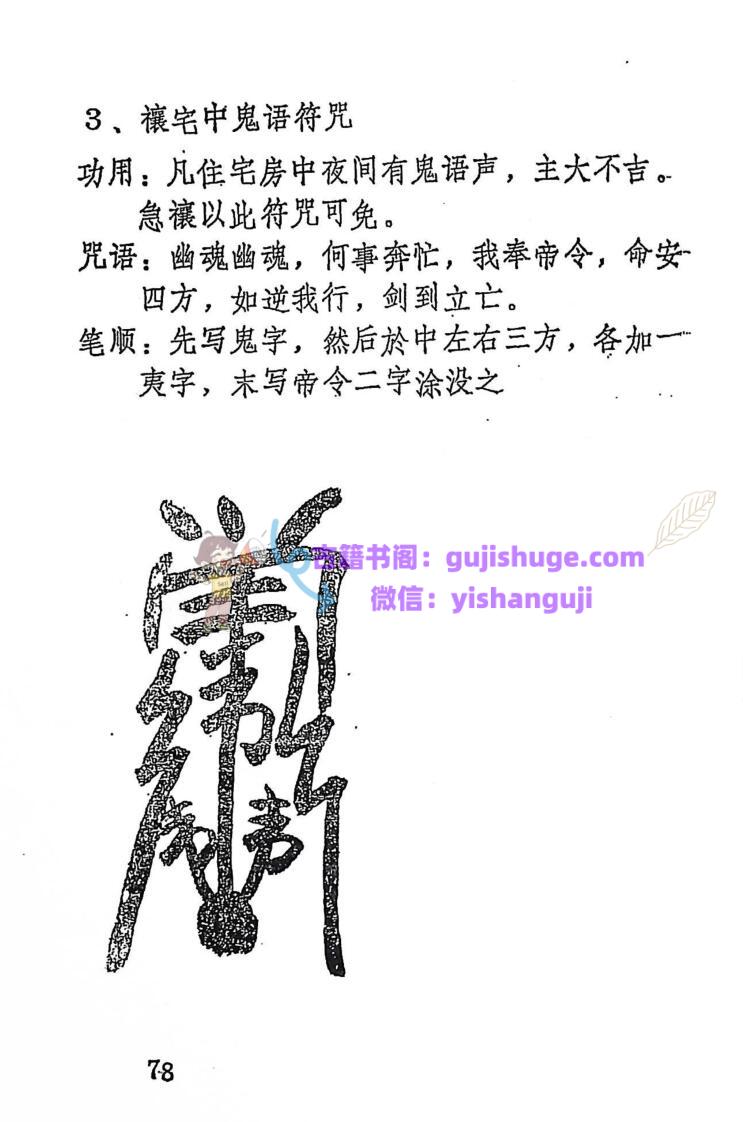 3、禳宅中鬼语符咒
功用：凡住宅房中夜间有鬼语声，主大不吉。
急禳以此符咒可免。
咒语：幽魂幽魂，何事奔忙，我奉帝令，命安
四方，如逆我行，剑到立亡。
笔顺：先写鬼字，然后於中左右三方，各加一
夷字，末写帝令二字涂没之
古籍书阁：gujishuge.com
微信：yishanguji
78